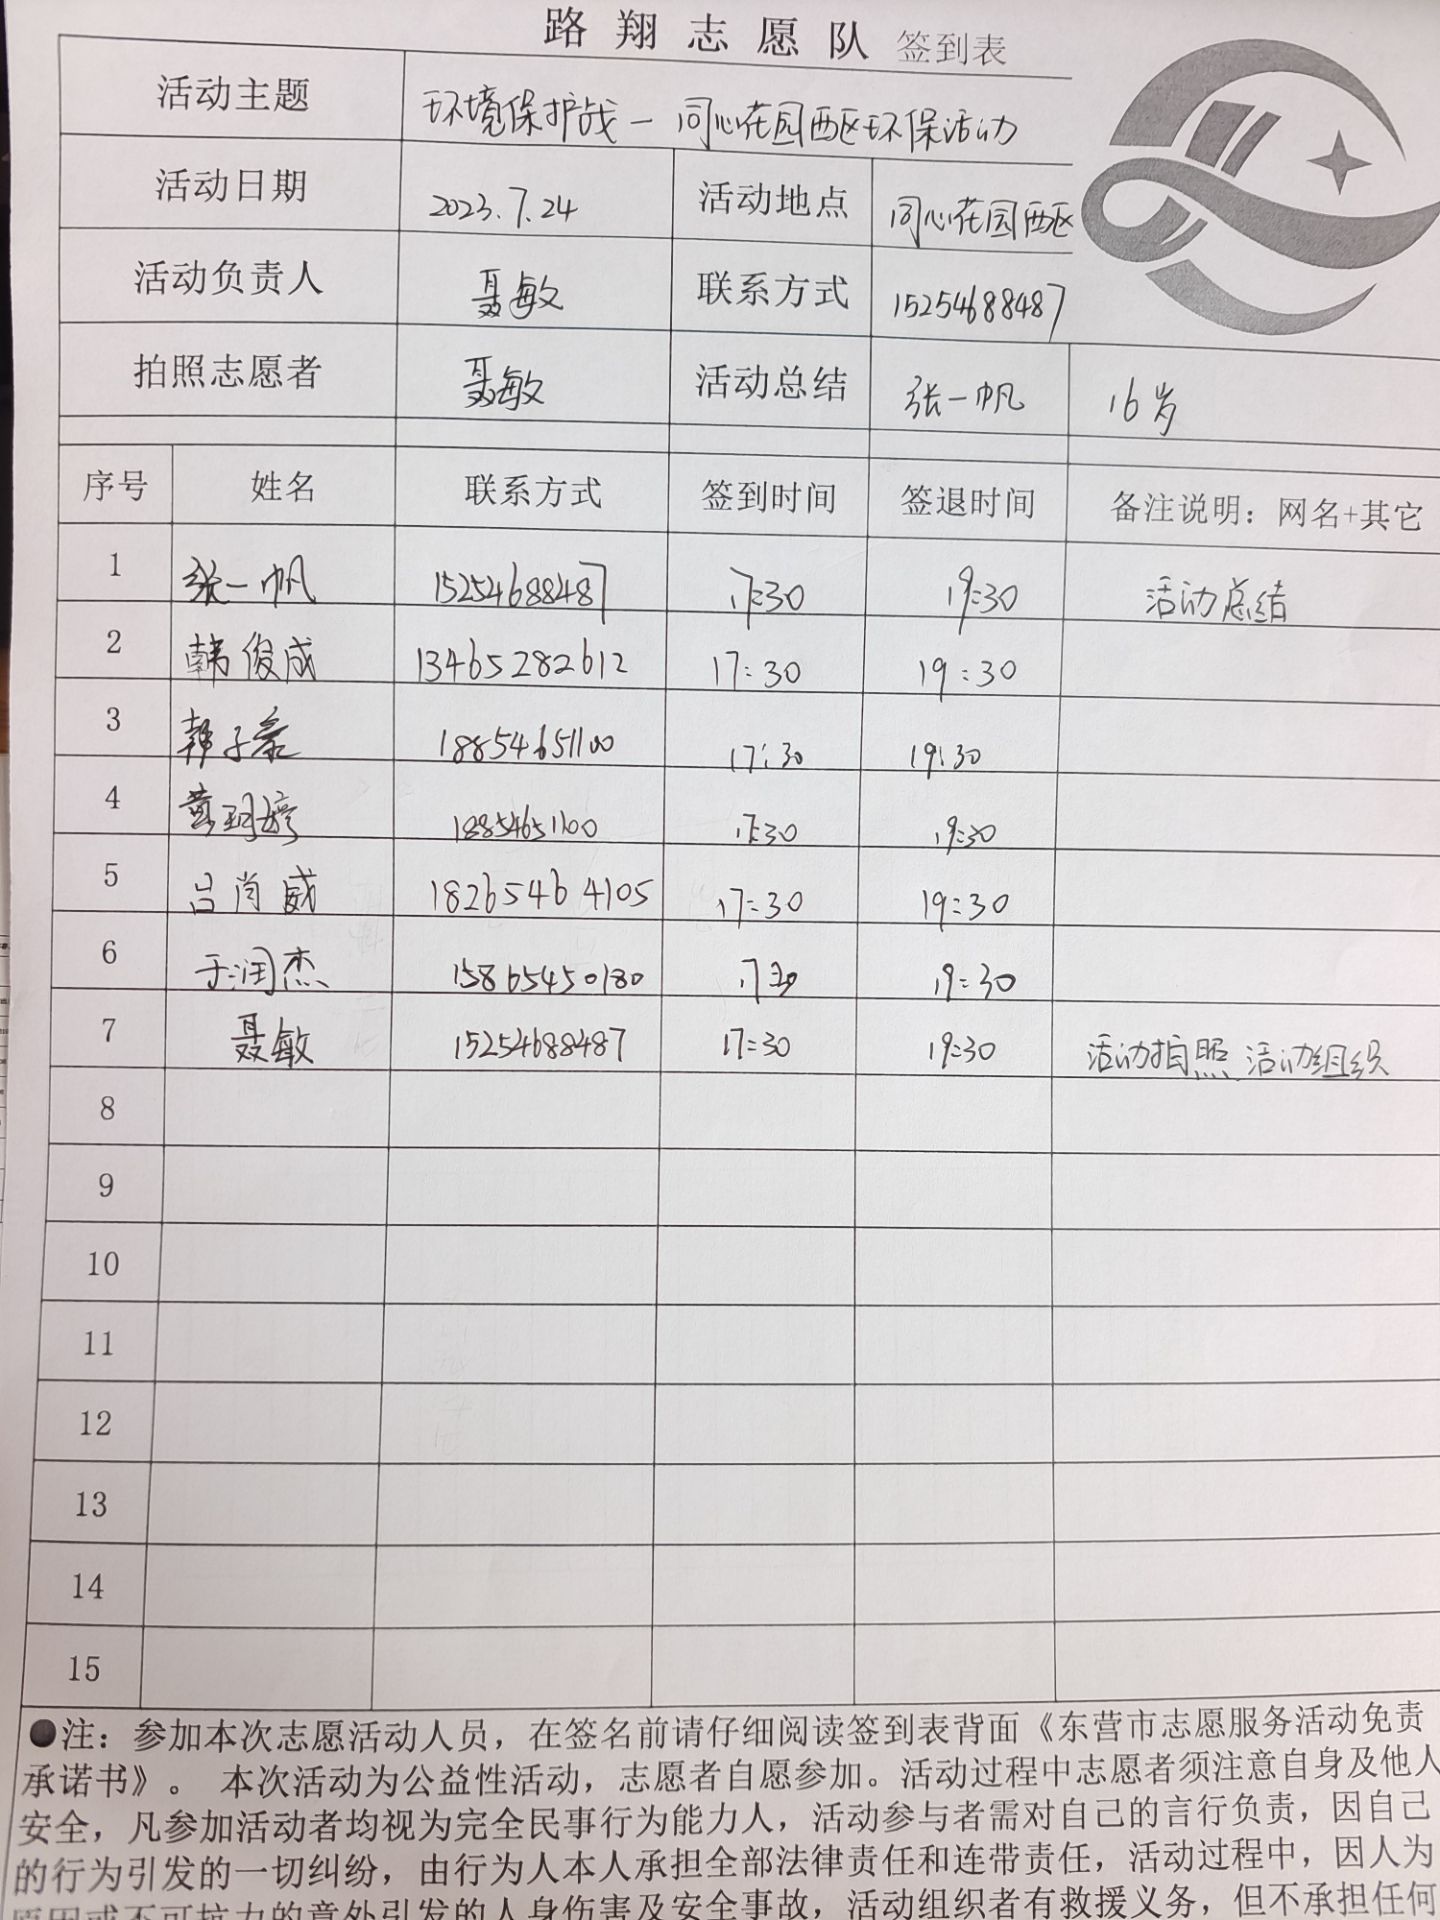 路翔志愿队 签到表
活动主题 环境保护战一同心花园西区环保活动
活动日期 2023.7.24 活动地点 同心花园西区
活动负责人 聂敏 联系方式 15254688487
拍照志愿者 聂敏 活动总结 张一帆 16岁
序号 姓名 联系方式 签到时间 签退时间 备注说明：网名+其它
1 张一帆 15254688487 17:30 19:30 活动总结
2 韩俊成 13465282612 17:30 19:30
3 韩子 18854651100 17:30 19:30
4 黄珂婷 18854651100 17:30 19:30
5 吕尚威 18265464105 17:30 19:30
6 于润杰 15865450180 17:30 19:30
7 聂敏 15254688487 17:30 19:30 活动拍照、活动组织
8
9
10
11
12
13
14
15
●注：参加本次志愿活动人员，在签名前请仔细阅读签到表背面《东营市志愿服务活动免责
承诺书》。 本次活动为公益性活动，志愿者自愿参加。活动过程中志愿者须注意自身及他人
安全，凡参加活动者均视为完全民事行为能力人，活动参与者需对自己的言行负责，因自己
的行为引发的一切纠纷，由行为人本人承担全部法律责任和连带责任，活动过程中，因人为
原因或不可抗力的意外引发的人身伤害及安全事故，活动组织者有救援义务，但不承担任何